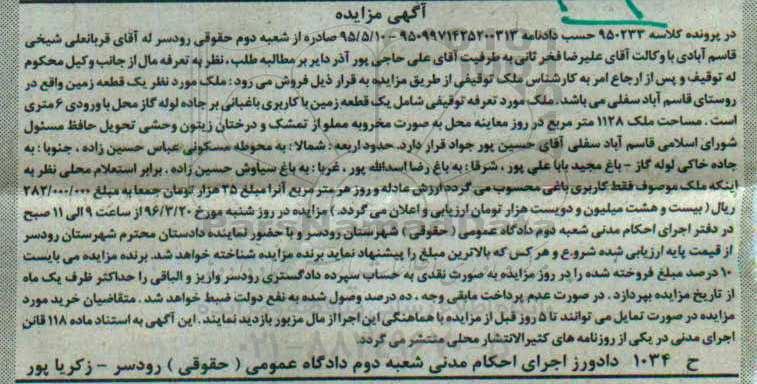 آگهی مزایده
در پرونده کلاسه ۹۵۰۲۳۳ حسب دادنامه ۹۵۰۹۹۷۱۴۲۵۲۰۰۳۱۳ - ۹۵/۵/۱۰ صادره از شعبه دوم حقوقی رودسر له آقای قربانعلی شیخی
قاسم آبادی با وکالت آقای علیرضا فخر ثانی به طرفیت آقای علی حاجی پور آذر دایر بر مطالبه طلب ، نظر به تعرفه مال از جانب وکیل محکوم
له توقیف و پس از ارجاع امر به کارشناس ملک توقیفی از طریق مزایده به قرار ذیل فروش می رود : ملک مورد نظر یک قطعه زمین واقع در
روستای قاسم آباد سفلی می باشد . ملک مورد تعرفه توقیفی شامل یک قطعه زمین با کاربری باغبانی بر جاده لوله گاز محل با ورودی ۶ متری
است . مساحت ملک ۱۱۲۸ متر مربع در روز معاینه محل به صورت مخروبه مملو از تمشک و درختان زیتون وحشی تحویل حافظ مسئول
شورای اسلامی قاسم آباد سفلی آقای حسین پور جواد قرار دارد. حدود اربعه : شمالا : به محوطه مسکونی عباس حسین زاده ، جنوبا : به
جاده خاکی لوله گاز - باغ مجید بابا علی پور ، شرقا : به باغ رضا اسدالله پور ، غربا : به باغ سیاوش حسین زاده . برابر استعلام محلی نظر به
اینکه ملک موصوف فقط کاربری باغی محسوب می گردد ارزش عادله و روز هر متر مربع آنرا مبلغ ۲۵ هزار تومان جمعا به مبلغ ۲۸۲/۰۰۰/۰۰۰
ریال ( بیست و هشت میلیون و دویست هزار تومان ارزیابی و اعلان می گردد . ) مزایده در روز شنبه مورخ ۹۶/۳/۲۰ از ساعت ۹ الی ۱۱ صبح
در دفتر اجرای احکام مدنی شعبه دوم دادگاه عمومی ( حقوقی ) شهرستان رودسر و با حضور نماینده دادستان محترم شهرستان رودسر
از قیمت پایه ارزیابی شده شروع و هر کس که بالاترین مبلغ را پیشنهاد نماید برنده مزایده شناخته خواهد شد. برنده مزایده می بایست
۱۰ درصد مبلغ فروخته شده را در روز مزایده به صورت نقدی به حساب سپرده دادگستری رودسر واریز و الباقی را حداکثر ظرف یک ماه
از تاریخ مزایده بپردازد . در صورت عدم پرداخت مابقی وجه ، ده درصد وصول شده به نفع دولت ضبط خواهد شد . متقاضیان خرید مورد
مزایده در صورت تمایل می توانند تا ۵ روز قبل از مزایده با هماهنگی این اجرا از مال مزبور بازدید نمایند . این آگهی به استناد ماده ۱۱۸ قانن
اجرای مدنی در یکی از روزنامه های کثیرالانتشار محلی منتشر می گردد.
ح ۱۰۳۴ دادورز اجرای احکام مدنی شعبه دوم دادگاه عمومی ( حقوقی ) رودسر - زکریا پور